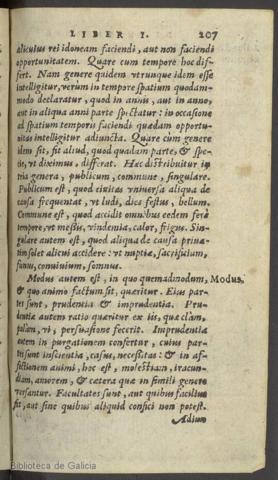 LIBER I. 207
alicuius rei idoneam faciendi, aut non faciendi
opportunitatem. Quare cum tempore hoc dif-
fert. Nam genere quidem vtrunque idem esse
intelligitur, verùm in tempore spatium quodam-
modo declaratur, quod in annis, aut in anno,
aut in aliqua anni parte spectatur: in occasione
ad spatium temporis faciendi quædam opportu-
nitas intelligitur adiuncta. Quare cùm genere
idem sit, fit aliud, quod quadam parte, & spe-
cie, vt diximus, differat. Hec distribuitur in
tria genera, publicum, commune, singulare.
Publicum est, quod ciuitas vniuersa aliqua de
causa frequentat, vt ludi, dies festus, bellum.
Commune est, quod accidit omnibus eodem ferè
tempore, vt messis, vindemia, calor, frigus. Sin-
gulare autem est, quod aliqua de causa priua-
tim solet alicui accidere: vt nuptiæ, sacrificium,
funus, conuiuium, somnus.
Modus autem est, in quo quemadmodum, Modus.
& quo animo factum sit, quæritur. Eius par-
tes sunt, prudentia & imprudentia. Pru-
dentiæ autem ratio quæritur ex iis, quæ clam,
palam, vi, persuasione fecerit. Imprudentia
autem in purgationem confertur, cuius par-
tes sunt inscientia, casus, necessitas: & in af-
fectionem animi, hoc est, molestiam, iracun-
diam, amorem, & cætera quæ in simili genere
versantur. Facultates sunt, aut quibus facilius
fit, aut sine quibus aliquid confici non potest.
Adiun
Biblioteca de Galicia